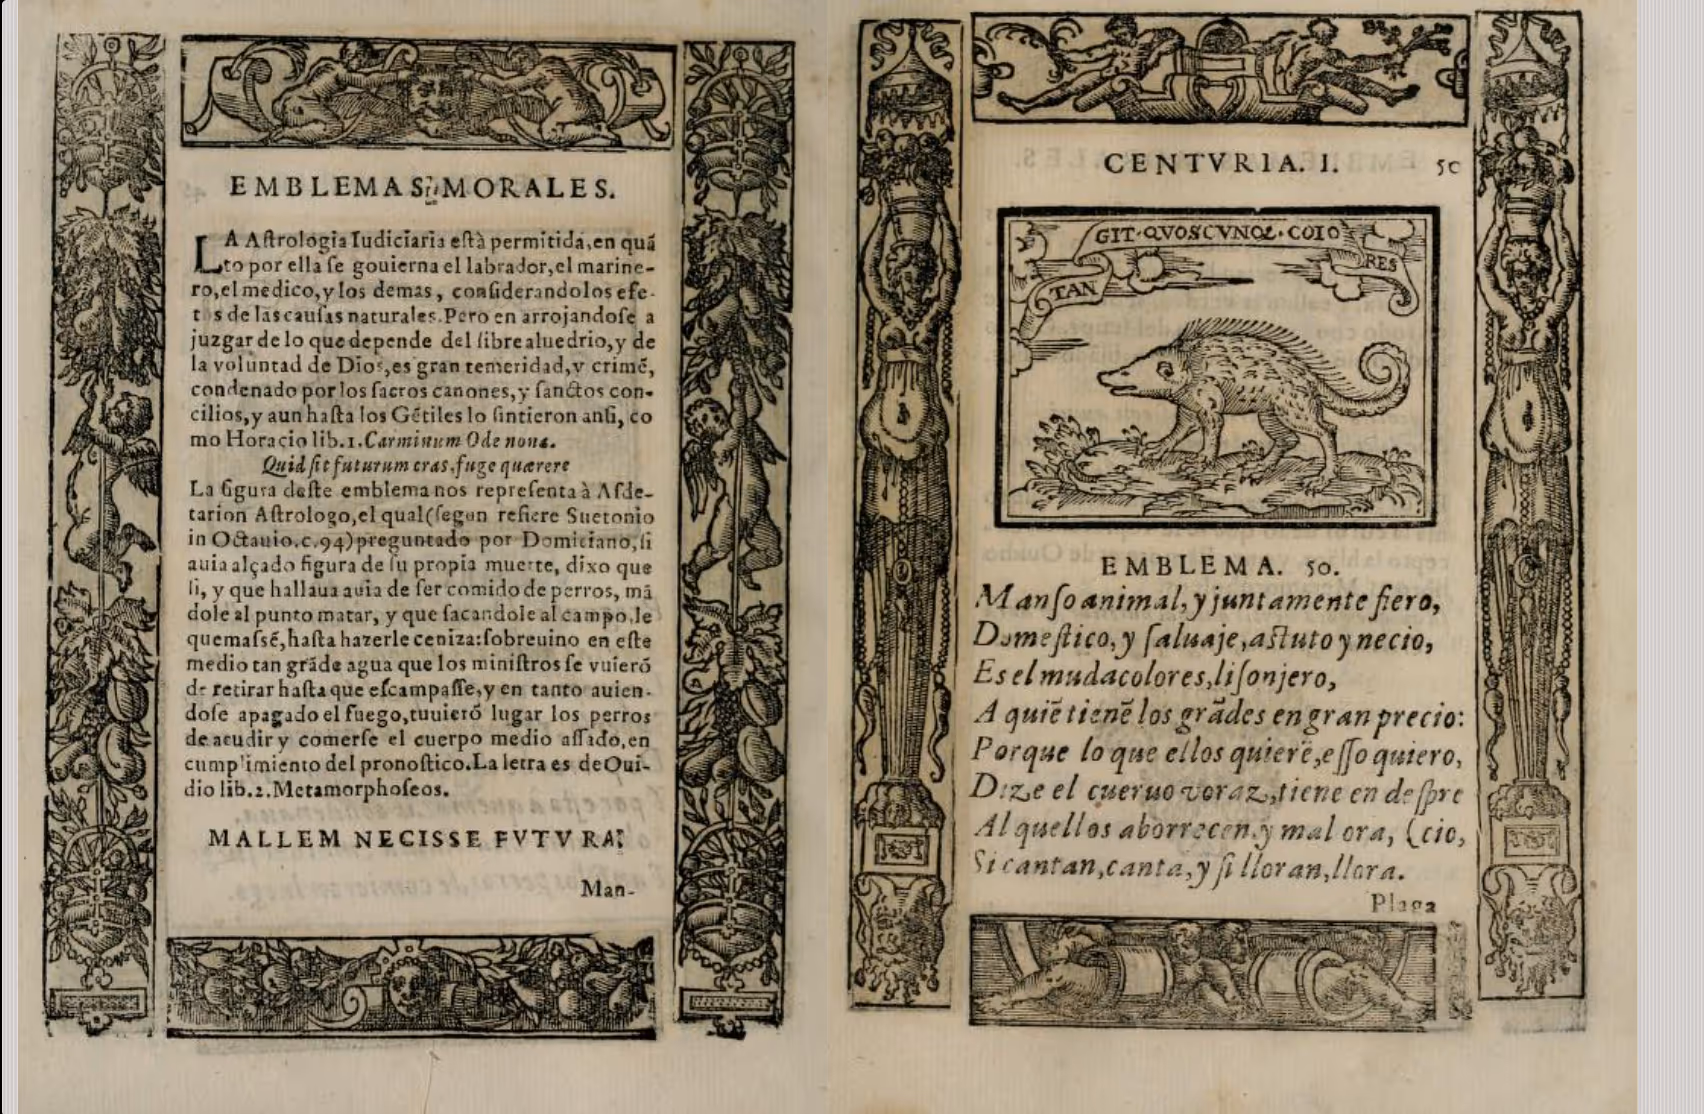 EMBLEMAS MORALES.
LA Aſtrologia Iudiciaria eſtà permitida, en quã
to por ella ſe gouierna el labrador, el marine-
ro, el medico, y los demas, conſiderandolos efe-
tos de las cauſas naturales. Pero en arrojandoſe a
juzgar de lo que depende del libre aluedrio, y de
la voluntad de Dios, es gran temeridad, y crimẽ,
condenado por los ſacros canones, y ſanctos con-
cilios, y aun haſta los Gẽtiles lo ſintieron anſi, co
mo Horacio lib. 1. Carminum Ode nona.
Quid ſit futurum cras, fuge quærere
La figura deſte emblema nos repreſenta à Aſde-
tarion Aſtrologo, el qual (ſegun refiere Suetonio
in Octauio. c. 94) preguntado por Domiciano, ſi
auia alçado figura de ſu propia muerte, dixo que
ſi, y que hallaua auia de ſer comido de perros, mã
dole al punto matar, y que ſacandole al campo, le
quemaſsẽ, haſta hazerle ceniza: ſobreuino en eſte
medio tan grãde agua que los miniſtros ſe vuierõ
de retirar haſta que eſcampaſſe, y en tanto auien-
doſe apagado el fuego, tuuierõ lugar los perros
de acudir y comerſe el cuerpo medio aſſado, en
cumplimiento del pronoſtico. La letra es de Oui-
dio lib. 2. Metamorphoſeos.
MALLEM NECISSE FVTVRA.
Man-
CENTVRIA. I. 50
TAN
GIT·QVOSCVNQƐ·COIO
RES
EMBLEMA. 50.
Manſo animal, y juntamente fiero,
Domeſtico, y ſaluaje, aſtuto y necio,
Es el mudacolores, liſonjero,
A quiẽ tienẽ los grãdes en gran precio:
Porque lo que ellos quierẽ, eſſo quiero,
Dize el cueruo voraz, tiene en deſpre
Al quellos aborrecen, y mal ora, (cio,
Si cantan, canta, y ſi lloran, llora.
Plaga